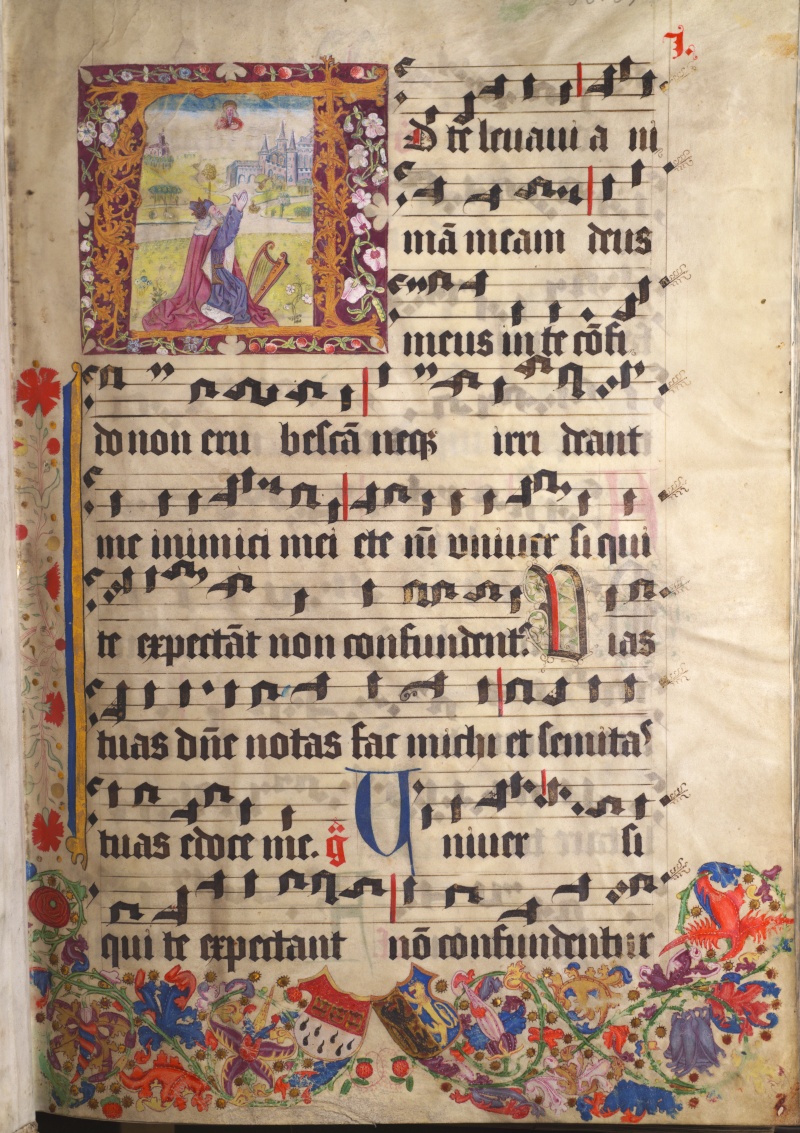 I.
D te levavi a ni
mā meam deus
meus in te cōfi
do non eru bescā neqȝ irri deant
me inimici mei ete nī vniuer si qui
te expectāt non confundent᷑. Vias
tuas dn̄e notas fac michi et semitas
tuas edoce me. g̃ Vniuer si
qui te expectant nō confundentur